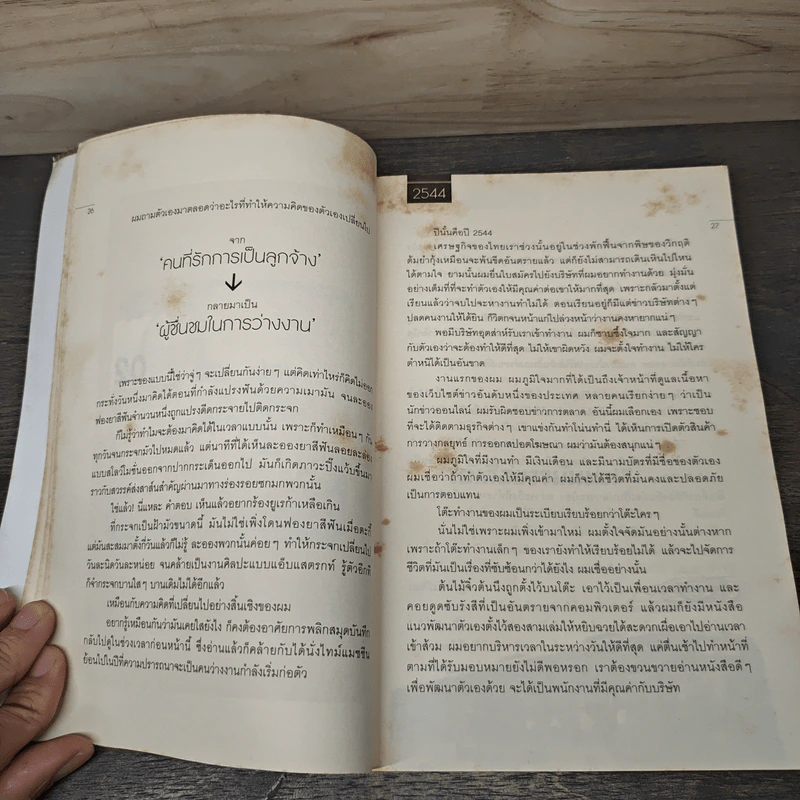 26
ผมถามตัวเองมาตลอดว่าอะไรที่ทำให้ความคิดของตัวเองเปลี่ยนไป
จาก
'คนที่รักการเป็นลูกจ้าง'
กลายมาเป็น
'ผู้ชื่นชมในการว่างงาน'
เพราะของแบบนี้ใช่ว่าจู่ๆ จะเปลี่ยนกันง่ายๆ แต่คิดเท่าไหร่ก็คิดไม่ออก
กระทั่งวันหนึ่งมาคิดได้ตอนที่กำลังแปรงฟันด้วยความเมามัน จนละออง
ฟองยาสีฟันจำนวนหนึ่งถูกแปรงดีดกระจายไปติดกระจก
ก็ไม่รู้ว่าทำไมจะต้องมาคิดได้ในเวลาแบบนั้น เพราะก็ทำเหมือนๆ กัน
ทุกวันจนกระจกมัวไปหมดแล้ว แต่นาทีที่ได้เห็นละอองยาสีฟันลอยละล่อง
แบบสโลว์โมชั่นออกจากปากกระเด็นออกไป มันก็เกิดภาวะปิ๊งแว้บขึ้นมา
ราวกับสวรรค์ส่งสาส์นสำคัญผ่านมาทางร่องรอยซกมกพวกนั้น
ใช่แล้ว! นี่แหละ คำตอบ เห็นแล้วอยากร้องยูเรก้าเหลือเกิน
ที่กระจกเป็นฝ้ามัวขนาดนี้ มันไม่ใช่เพิ่งโดนฟองยาสีฟันเมื่อตะกี้
แต่มันสะสมมาตั้งกี่วันแล้วก็ไม่รู้ ละอองพวกนั้นค่อยๆ ทำให้กระจกเปลี่ยนไป
วันละนิดวันละหน่อย จนคล้ายเป็นงานศิลปะแบบแอ็บแสตรกท์ รู้ตัวอีกที
ก็จำกระจกบานใสๆ บานเดิมไม่ได้อีกแล้ว
เหมือนกับความคิดที่เปลี่ยนไปอย่างสิ้นเชิงของผม
อยากรู้เหมือนกันว่ามันเคยใสยังไง ก็คงต้องอาศัยการพลิกสมุดบันทึก
กลับไปดูในช่วงเวลาก่อนหน้านี้ ซึ่งอ่านแล้วก็คล้ายกับได้นั่งไทม์แมชชีน
ย้อนไปในปีที่ความปรารถนาจะเป็นคนว่างงานกำลังเริ่มก่อตัว
2544
27
ปีนั้นคือปี 2544
เศรษฐกิจของไทยเราช่วงนั้นอยู่ในช่วงพักฟื้นจากพิษของวิกฤติ
ต้มยำกุ้งเหมือนจะพ้นขีดอันตรายแล้ว แต่ก็ยังไม่สามารถเดินเหินไปไหน
ได้ตามใจ ยามนั้นผมยื่นใบสมัครไปยังบริษัทที่ผมอยากทำงานด้วย มุ่งมั่น
อย่างเต็มที่ที่จะทำตัวเองให้มีคุณค่าต่อเขาให้มากที่สุด เพราะกลัวมาตั้งแต่
เรียนแล้วว่าจบไปจะหางานทำไม่ได้ ตอนเรียนอยู่ก็มีแต่ข่าวบริษัทต่างๆ
ปลดคนงานให้ได้ยิน ก็วิตกจนหน้าแก่ไปล่วงหน้าว่างานคงหายากแน่ๆ
พอมีบริษัทอุตส่าห์รับเราเข้าทำงาน ผมก็ซาบซึ้งใจมาก และสัญญา
กับตัวเองว่าจะต้องทำให้ดีที่สุด ไม่ให้เขาผิดหวัง ผมจะตั้งใจทำงาน ไม่ให้ใคร
ตำหนิได้เป็นอันขาด
งานแรกของผม ผมภูมิใจมากที่ได้เป็นถึงเจ้าหน้าที่ดูแลเนื้อหา
ของเว็บไซต์ข่าวอันดับหนึ่งของประเทศ หลายคนเรียกง่ายๆ ว่าเป็น
นักข่าวออนไลน์ ผมรับผิดชอบข่าวการตลาด อันนี้ผมเลือกเอง เพราะชอบ
ที่จะได้ติดตามธุรกิจต่างๆ เขาแข่งกันทำโน่นทำนี่ ได้เห็นการเปิดตัวสินค้า
การวางกลยุทธ์ การออกสปอตโฆษณา ผมว่ามันต้องสนุกแน่ๆ
ผมภูมิใจที่มีงานทำ มีเงินเดือน และมีนามบัตรที่มีชื่อของตัวเอง
ผมเชื่อว่าถ้าทำตัวเองให้มีคุณค่า ผมก็จะได้ชีวิตที่มั่นคงและปลอดภัย
เป็นการตอบแทน
โต๊ะทำงานของผมเป็นระเบียบเรียบร้อยกว่าโต๊ะใครๆ
นั่นไม่ใช่เพราะผมเพิ่งเข้ามาใหม่ ผมตั้งใจจัดมันอย่างนั้นต่างหาก
เพราะถ้าโต๊ะทำงานเล็กๆ ของเรายังทำให้เรียบร้อยไม่ได้ แล้วจะไปจัดการ
ชีวิตที่มันเป็นเรื่องที่ซับซ้อนกว่าได้ยังไง ผมเชื่ออย่างนั้น
ต้นไม้จิ๋วต้นนึงถูกตั้งไว้บนโต๊ะ เอาไว้เป็นเพื่อนเวลาทำงาน และ
คอยดูดซับรังสีที่เป็นอันตรายจากคอมพิวเตอร์ แล้วผมก็ยังมีหนังสือ
แนวพัฒนาตัวเองตั้งไว้สองสามเล่มให้หยิบฉวยได้สะดวกเผื่อเอาไปอ่านเวลา
เข้าส้วม ผมอยากบริหารเวลาในระหว่างวันให้ดีที่สุด แค่ตื่นเช้าไปทำหน้าที่
ตามที่ได้รับมอบหมายยังไม่ดีพอหรอก เราต้องขวนขวายอ่านหนังสือดีๆ
เพื่อพัฒนาตัวเองด้วย จะได้เป็นพนักงานที่มีคุณค่ากับบริษัท